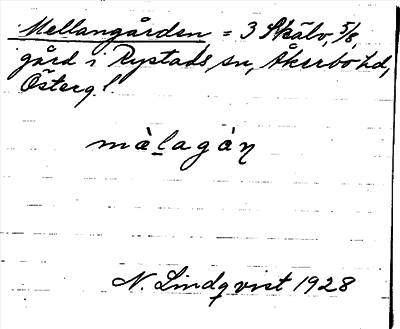 Mellangården = 3 Skälv, 5/8,
gård i Rystads sn, Åkerbo hd,
Österg.
màḷagȧ̀ŋ
N. Lindqvist 1928